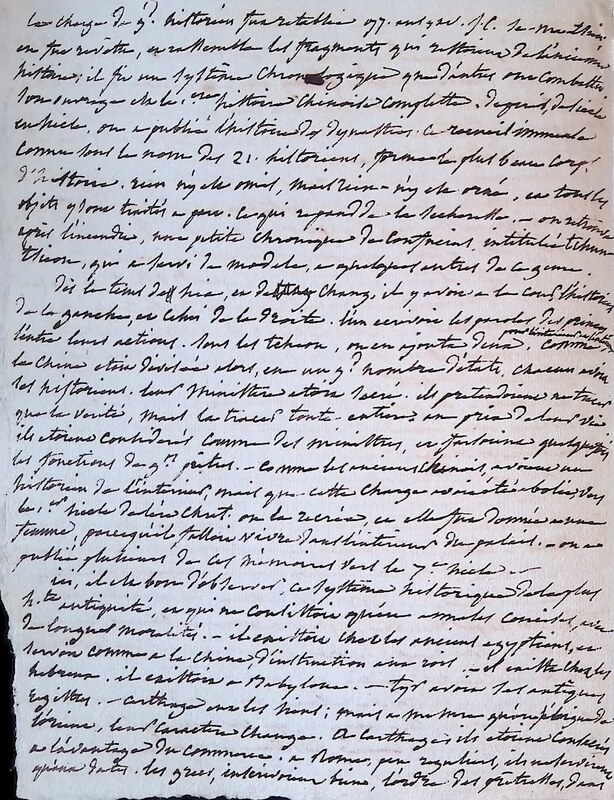 la charge de gd. historien fut retablie 97. ans av. J.C. Se-ma Thsien
en fut revêtu, et rassembla les fragments qui restoient de l'ancienne
histoire; il fit un système chronologique que d'autres ont combattu
son ouvrage est la 1.ere histoire chinoise complette. depuis, de siècle
en siècle, on a publié l'histoire des dynasties. ce recueil immense
connu sous le nom des 21. historiens, forme le plus beau corps
d'histoire. rien n'y est omis, mais rien n'y est orné, et tous les
objets y sont traités a part. ce qui repand de la secheresse. - on retrouva
après l'incendie, une petite chronique de Confucius, intitulée tchun
tsieou, qui a servi de modele, a quelques autres de ce genre.
dès le tems des hia, et des chang, il y avoit a la cour l'historien
de la gauche, et celui de la droite. l'un ecrivoit les paroles des princes
l'autre leurs actions. sous les tcheou, on en ajouta deux. comme
la Chine etoit divisée alors, en un gd. nombre d'états, chacun avoit
ses historiens. leur ministère etoit sacré. ils pretendoient ne tracer
que la verité, mais la tracer toute entiere au prix de leur vie
ils etoient considerés comme des ministres, et faisoient quelquefois
les fonctions de gds. prêtres. - comme les anciens chinois, avoient un
historien de l'interieur, mais que cette charge avoit été abolie vers
le 1.er siècle de l'ere chret. on la recréa, et elle fut donnée a une
femme, parcequ'il falloit vivre dans l'interieur du palais. - on a
publié plusieurs de ces mémoires vers le 7.e siècle. -
ici, il est bon d'observer, ce système historique de la plus
h.te antiquité, et qui ne consistoit guères en annales concises, avec
de longues moralités. - il exista chez les anciens egyptiens, et
servoit comme a la Chine d'instruction aux rois. - il exista chez les
hebreux. il exista a Babylone. - tyr avoit ses antiques
registres. - carthage eut les siens; mais a mesure qu'on s'éloigne de
l'orient, leur caractère change. A carthage, ils etoient consacrés
a l'avantage du commerce. a Rome, peu reguliers, ils ne servirent
qu'aux dates. les grecs, intervertirent l'ordre des prêtresses, dans